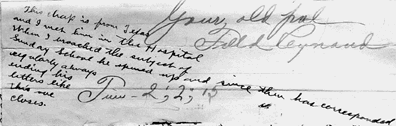 Your old pal
Todd Reynard
Tim - 2; 2; 15
This chap is from Texas
and I met him in the Hospital
When I broached the subject of
Sunday School he opened up and since then has corresponded
regularly always
ending his
letters like
this one
closes.